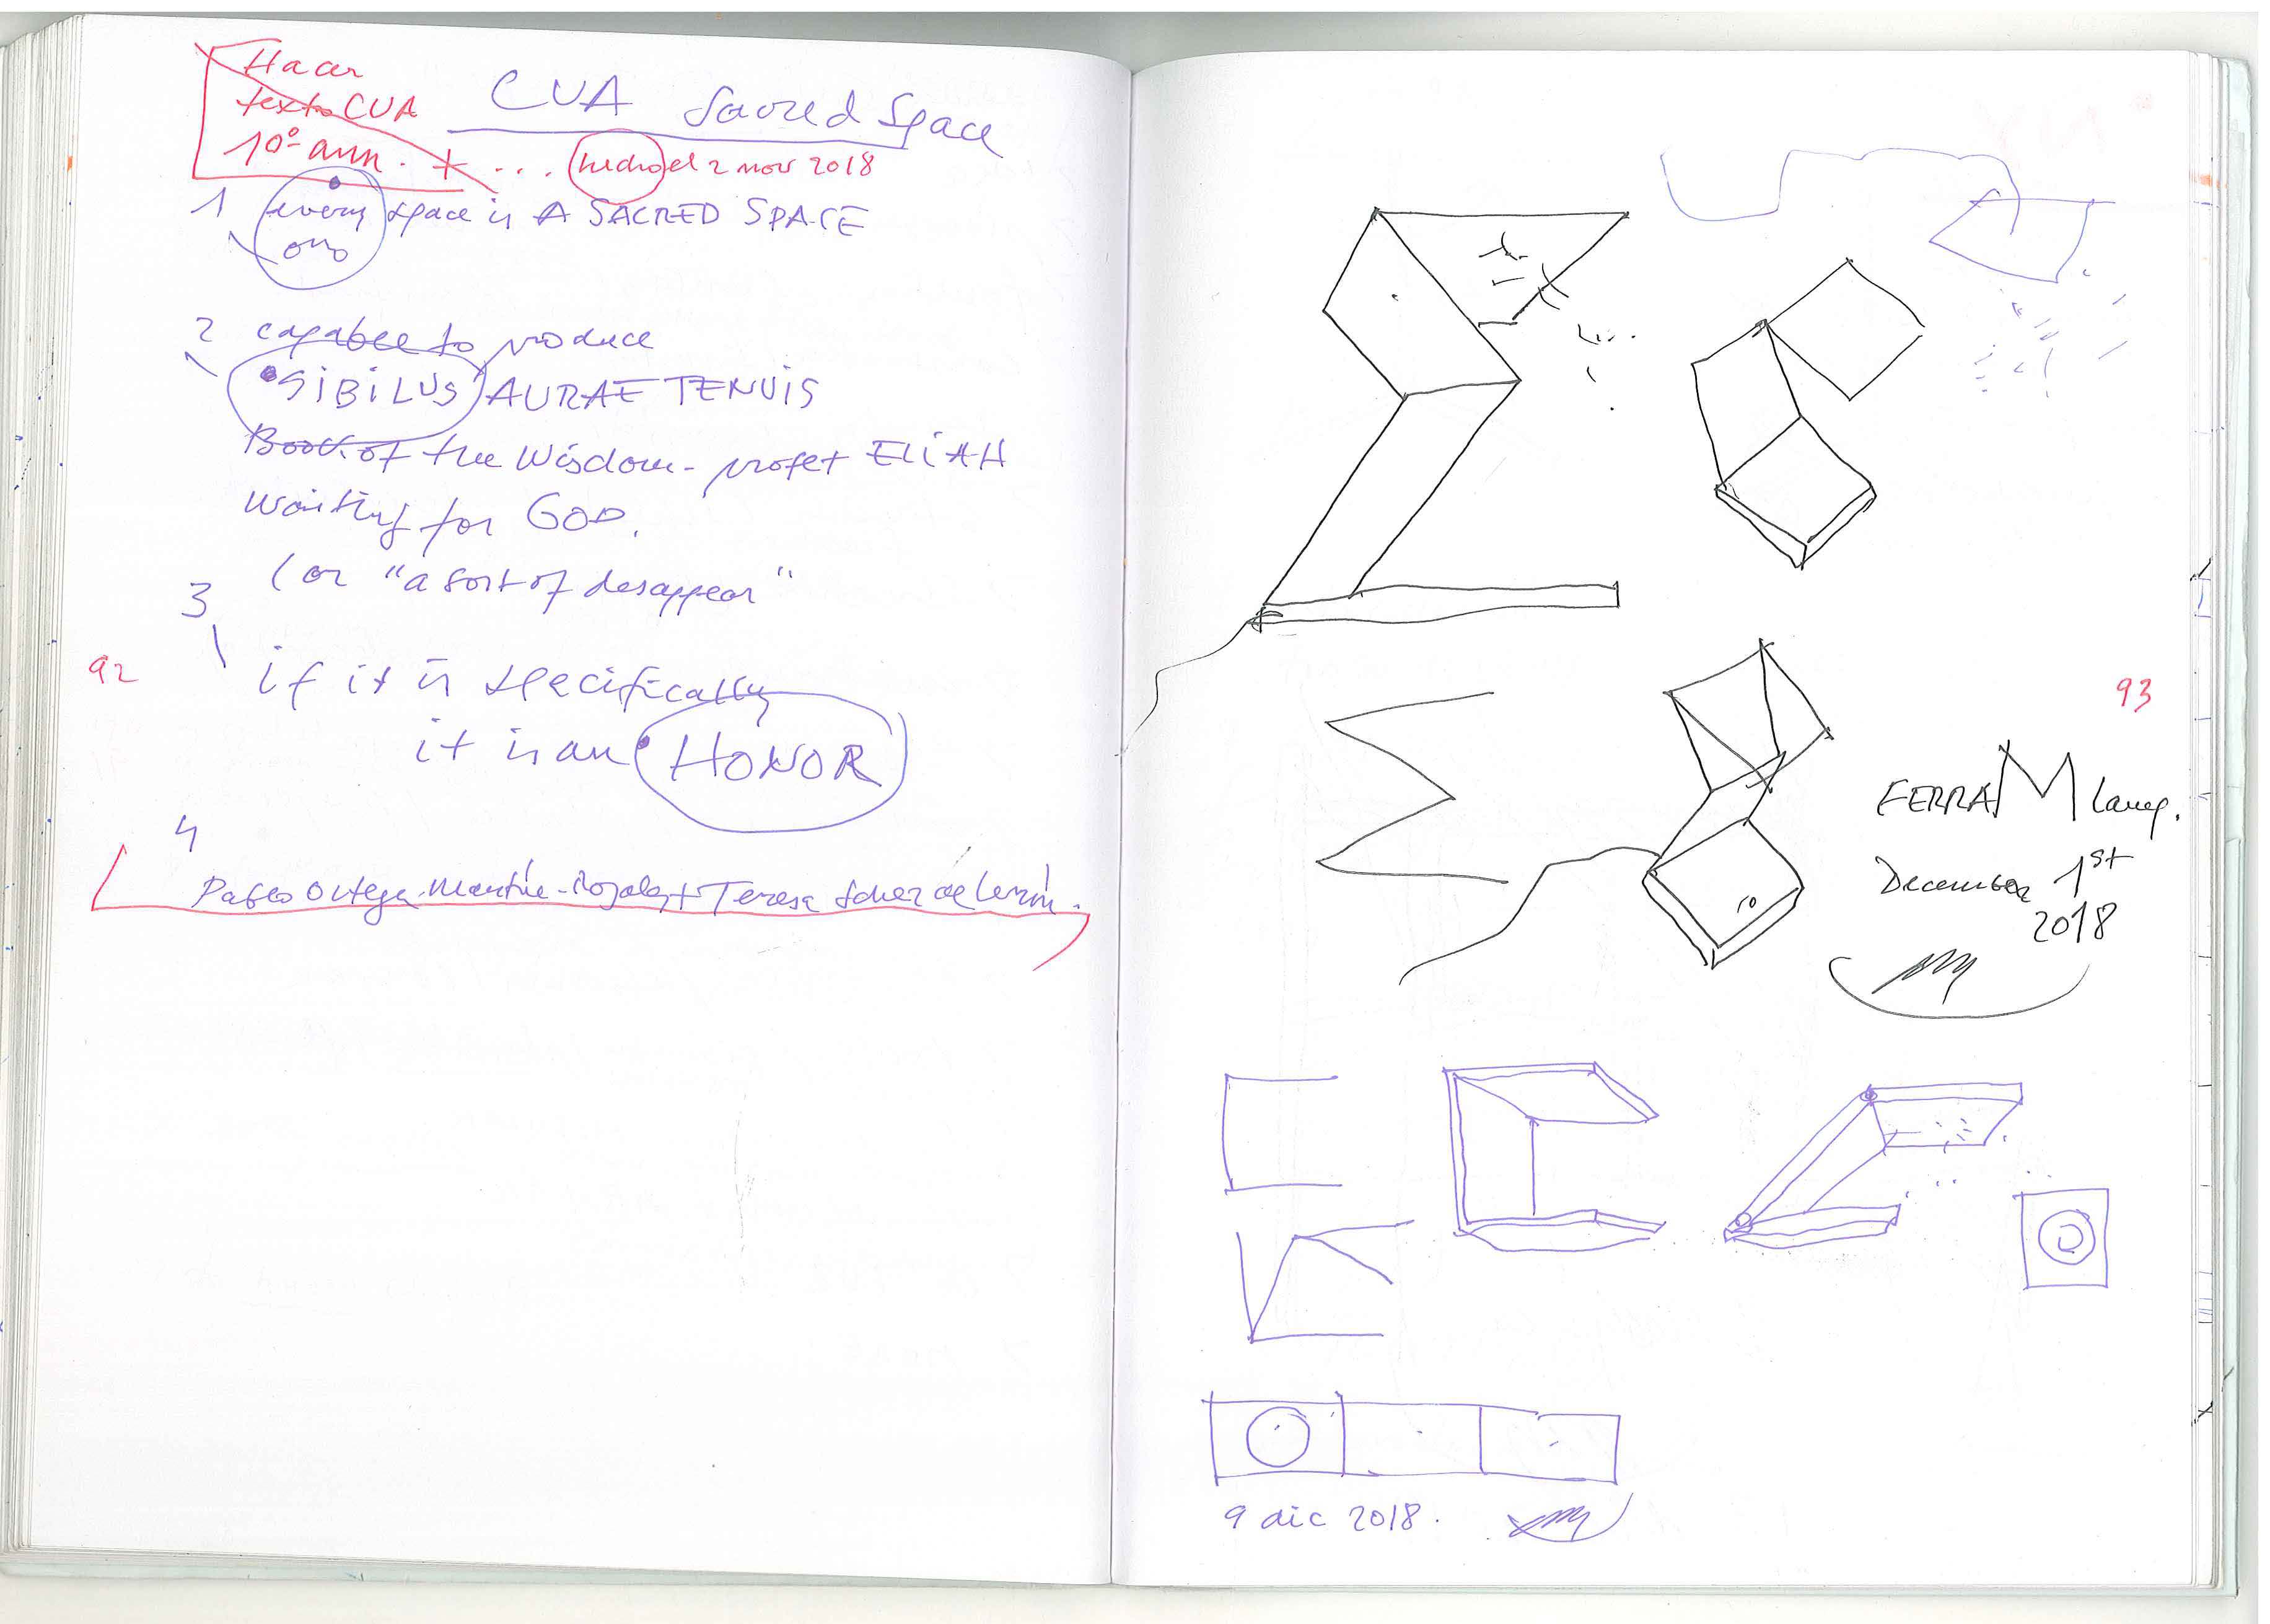 Hacer
texto CUA
10º ann. + ... hecho el 2 nov 2018
CUA Sacred Space
1 every space is A SACRED SPACE
one
2 capable to produce
SIBILUS AURAE TENUIS
Book of the Wisdom - profet ELIAH
waiting for GOD.
(or "a sort of desappear"
3
if it is specifically
it is an HONOR
92
4
Pablo Ortega Martín-Royales + Teresa de Lerín.
93
FERRAM lamp.
December 1st
2018
9 dic 2018.